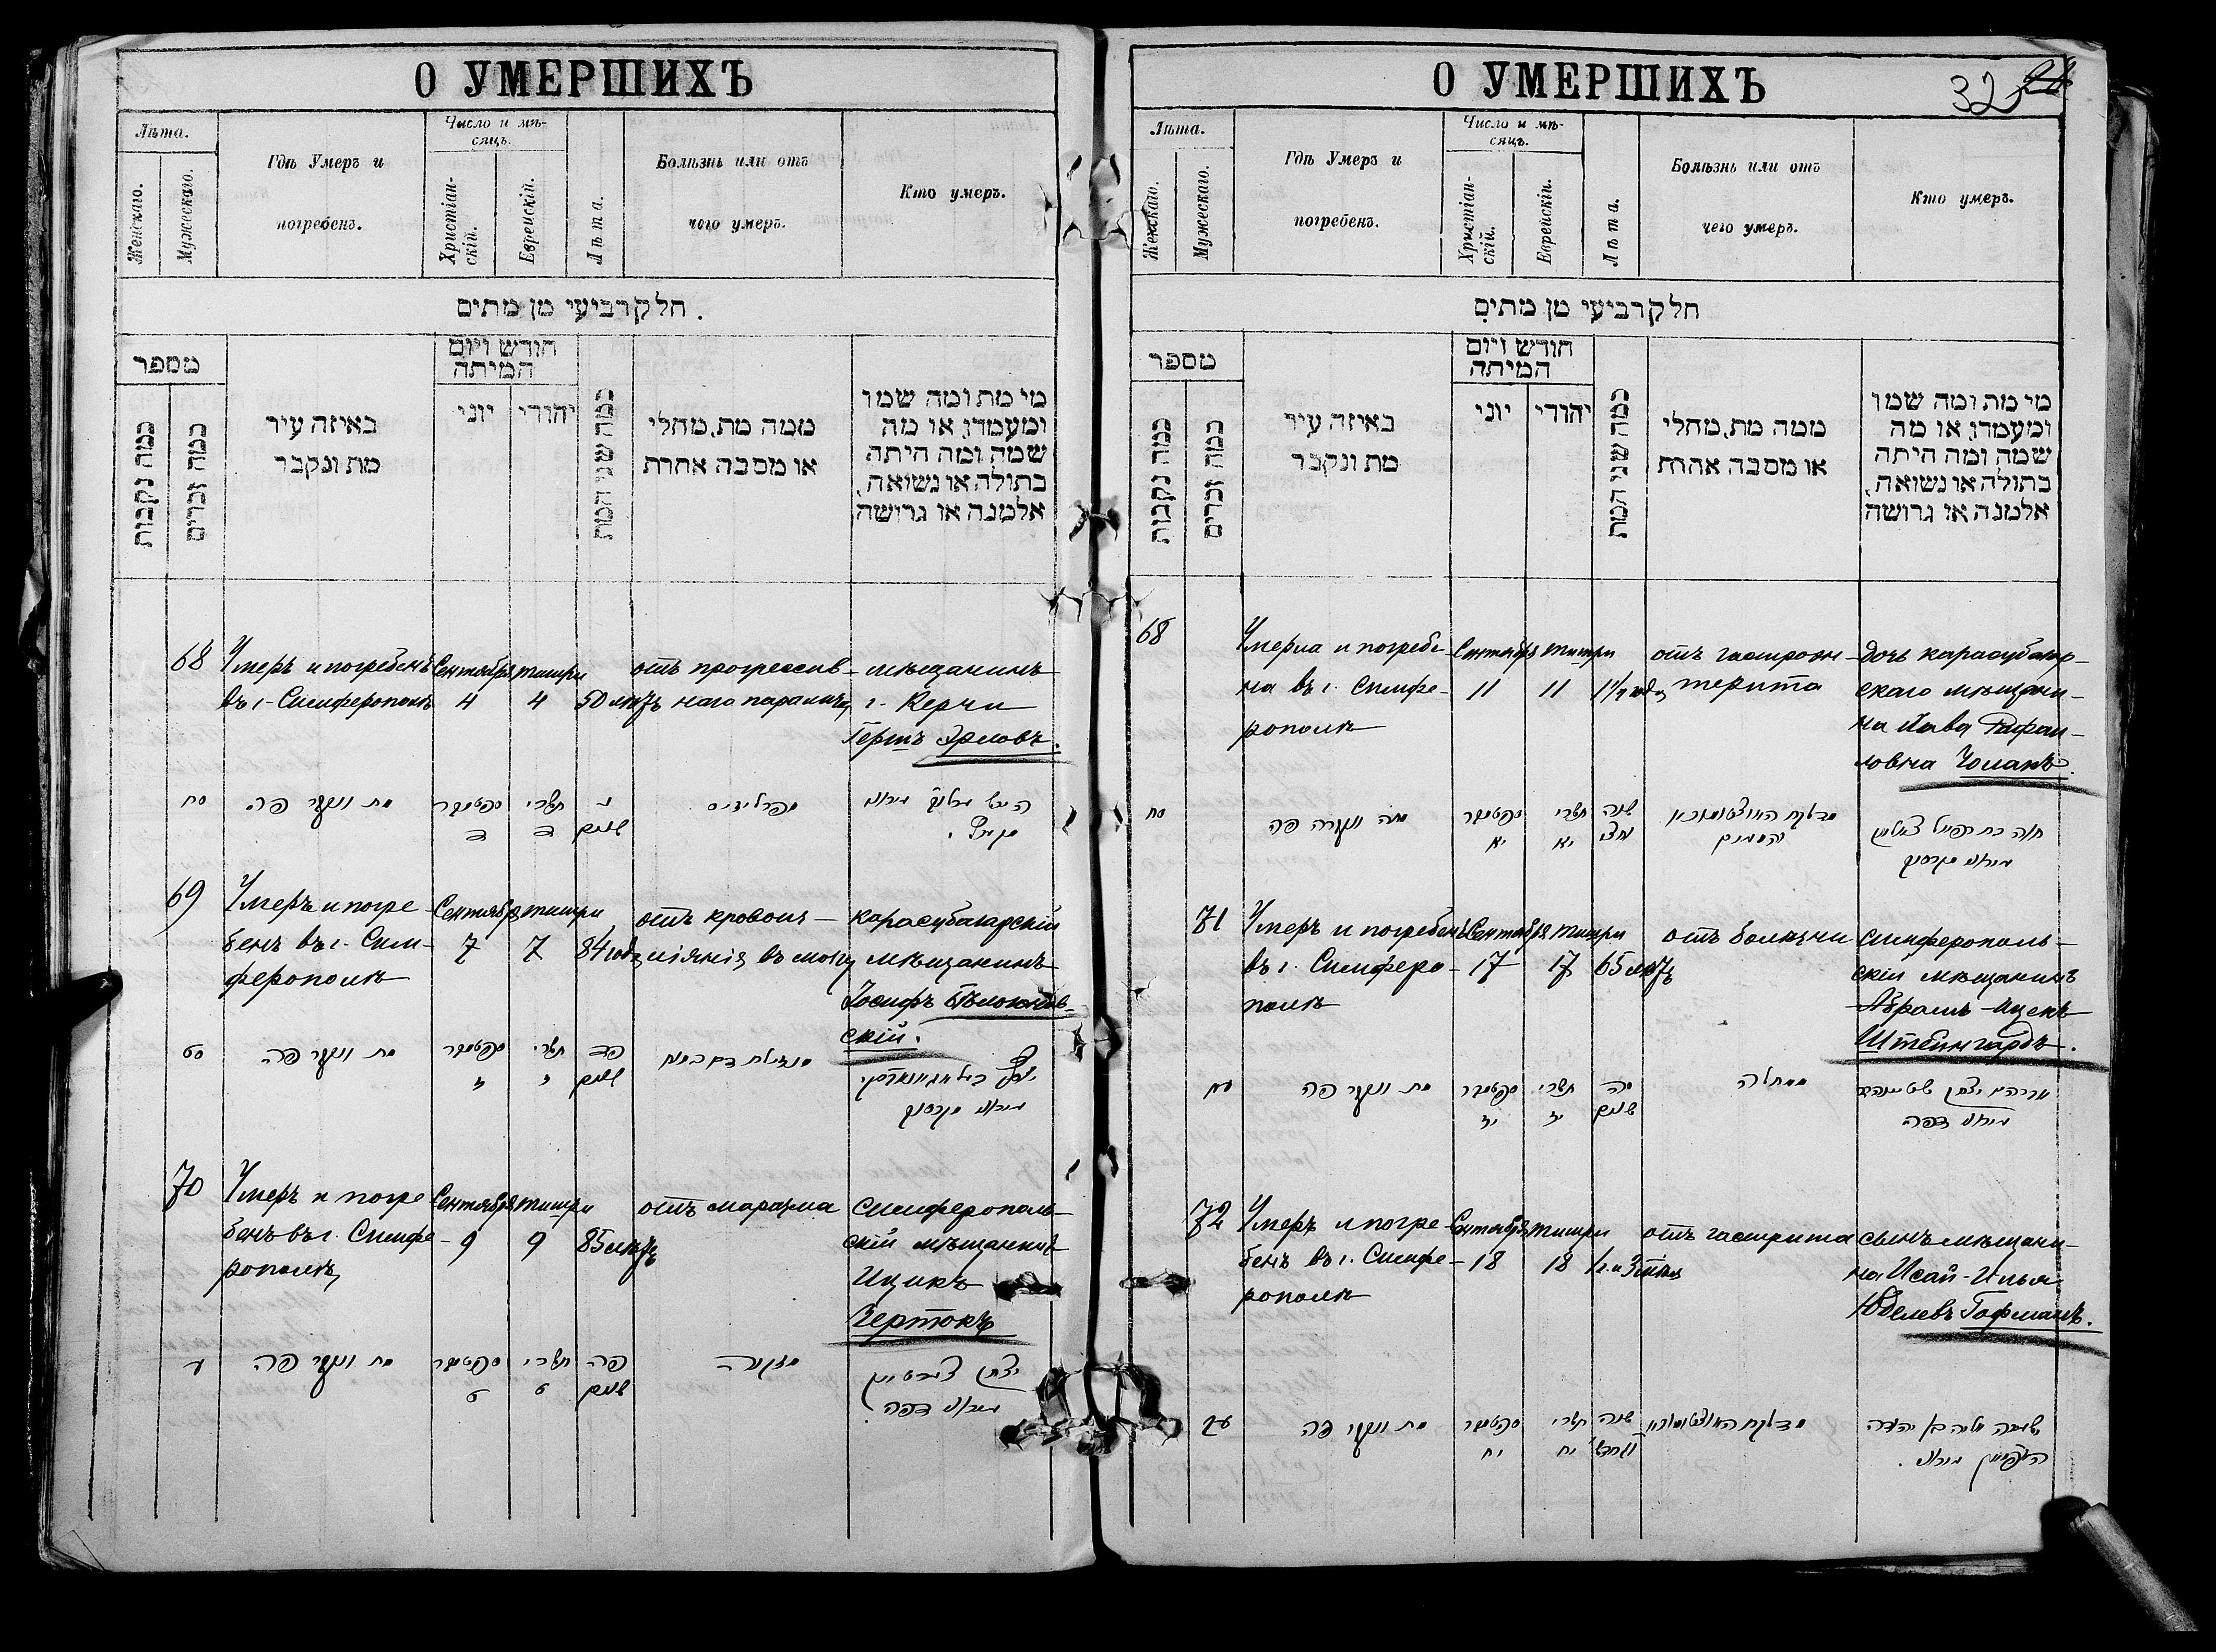 О УМЕРШИХЪ
Лѣта.
Женскаго.
Мужескаго.
Гдѣ Умеръ и
погребенъ.
Число и мѣ-
сяцъ.
Христіан-
скій.
Еврейскій.
Лѣта.
Болѣзнь или отъ
чего умеръ.
Кто умеръ.
חלק רביעי מן מתים
מספר
כמה נקבות
כמה זכרים
באיזה עיר
מת ונקבר
חודש ויום
המיתה
יוני
יהודי
כמה שני המת
ממה מת, מחלי
או מסבה אחרת
מי מת ומה שמו
ומעמדו, או מה
שמה ומה היתה
בתולה או נשואה,
אלמנה או גרושה
68
Умеръ и погребенъ
въ г. Симферополѣ
Сентября
4
тишри
4
50 лѣтъ
отъ прогрессив-
наго паралича
мѣщанинъ
г. Керчи
Гершъ Орловъ.
סח
מת ונקבר פה
סקטמבר
ד
תשרי
ד
נ
שנים
69
Умеръ и погре-
бенъ въ г. Сим-
ферополѣ
Сентября
7
тишри
7
84 года
отъ кровоиз-
ліянія въ мозгу
карасубазарскій
мѣщанинъ
Іосифъ
скій.
סט
מת ונקבר פה
סקטמבר
ז
תשרי
ז
פד
שנים
70
Умеръ и погре
бенъ въ г. Симфе-
рополѣ
Сентября
9
тишри
9
85 лѣтъ
отъ маразма
симферополь-
скій мѣщанинъ
Ицикъ
Чертокъ
ע
מת ונקבר פה
סקטמבר
ט
תשרי
ט
פה
שנים
מזקנה
О УМЕРШИХЪ
32
28
Лѣта.
Женскаго.
Мужескаго.
Гдѣ Умеръ и
погребенъ.
Число и мѣ-
сяцъ.
Христіан-
скій.
Еврейскій.
Лѣта.
Болѣзнь или отъ
чего умеръ.
Кто умеръ.
חלק רביעי מן מתים
מספר
כמה נקבות
כמה זכרים
באיזה עיר
מת ונקבר
חודש ויום
המיתה
יוני
יהודי
כמה שני המת
ממה מת, מחלי
או מסבה אחרת
מי מת ומה שמו
ומעמדו, או מה
שמה ומה היתה
בתולה או נשואה,
אלמנה או גרושה
68
Умерла и погребе-
на въ г. Симфе-
рополѣ
Сентября
11
тишри
11
отъ гастроэн-
терита
дочь карасубазар-
скаго мѣщани-
на Хава Рафаи-
ловна
סח
מתה ונקברה פה
סקטמבר
יא
תשרי
יא
שנה
חוה בת רפאל
71
Умеръ и погребенъ
въ г. Симферо-
полѣ
Сентября
17
тишри
17
65 лѣтъ
отъ болѣзни
симферополь-
скій мѣщанинъ
Абрамъ-Ицекъ
Штейнгардъ.
מת ונקבר פה
סקטמבר
יז
תשרי
יז
סה
שנים
ממחלה
אברהם יצחק
72
Умеръ и погре-
бенъ въ г. Симфе-
рополѣ
Сентября
18
тишри
18
отъ гастрита
сынъ мѣщани-
на Исай-Илья
Юделевъ Гофманъ.
עב
מת ונקבר פה
סקטמבר
יח
תשרי
יח
שנה
ישעיה אליה בן יהודה